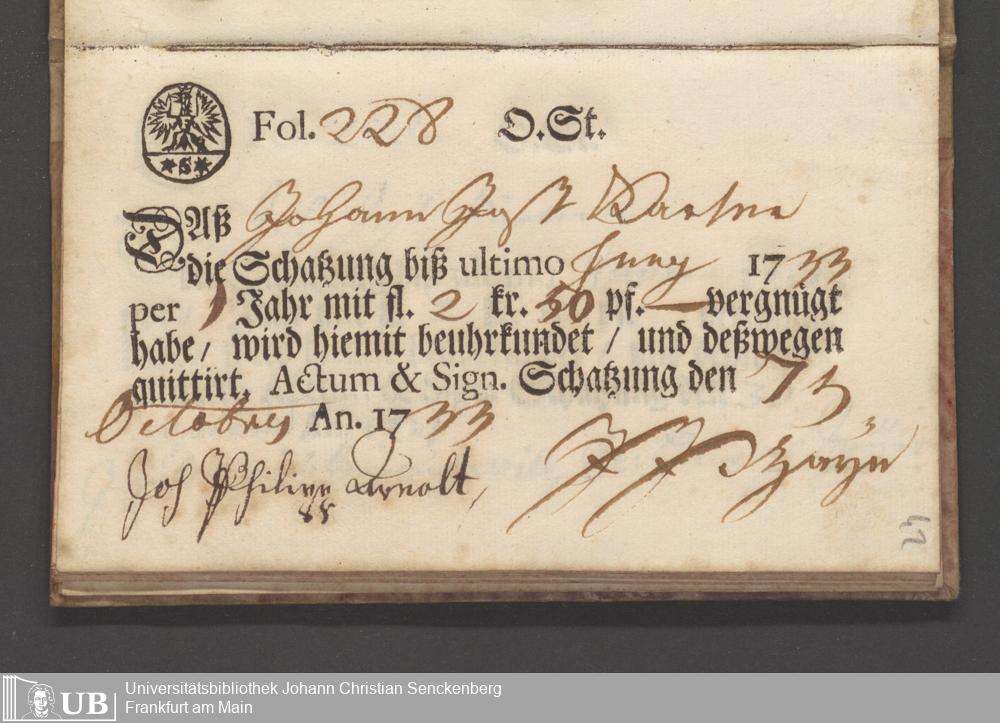 Fol. 228 O. St.
*S*
Daß Johann Jost
die Schatzung biß ultimo Juny 1733
per 1 Jahr mit fl. 2 kr. 50 pf. — vergnügt
habe / wird hiemit beuhrkundet / und deßwegen
quittirt. Actum & Sign. Schatzung den
Octobris An. 1733
Joh Philipp Arnolt
UB Universitätsbibliothek Johann Christian Senckenberg
Frankfurt am Main